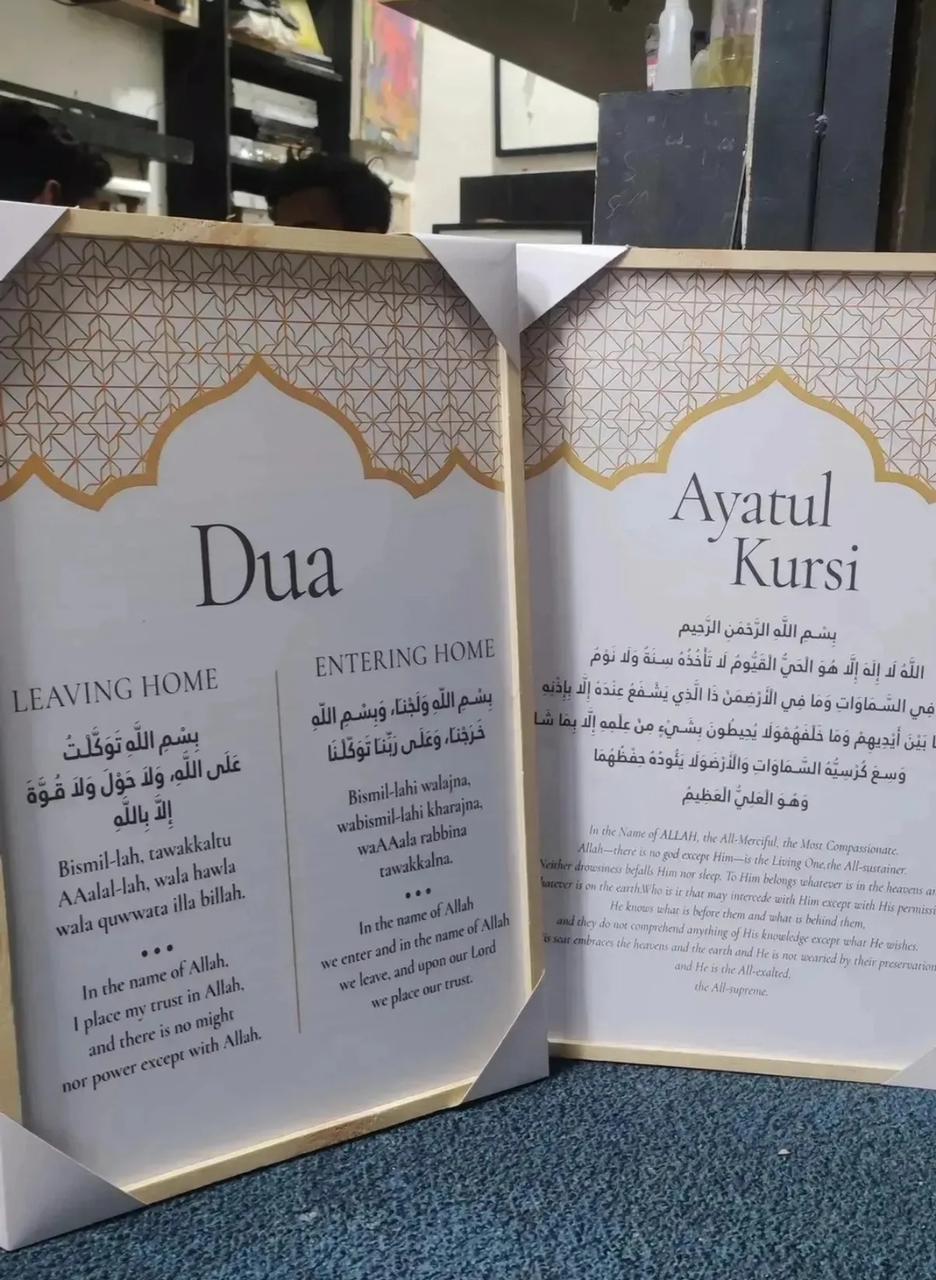 Dua
LEAVING HOME
بِسْمِ اللَّهِ تَوَكَّلْتُ
عَلَى اللَّهِ، وَلاَ حَوْلَ وَلاَ قُـوَّةَ
إِلاَّ بِاللَّهِ
Bismil-lah, tawakkaltu
AAalal-lah, wala hawla
wala quwwata illa billah.
•••
In the name of Allah,
I place my trust in Allah,
and there is no might
nor power except with Allah.
ENTERING HOME
بِسْمِ اللّهِ وَلَجْنَا، وَبِسْمِ اللّهِ
خَرَجْنَا، وَعَلَى رَبِّنَا تَوَكَّلْنَا
Bismil-lahi walajna,
wabismil-lahi kharajna,
waAAala rabbina
tawakkalna.
•••
In the name of Allah
we enter and in the name of Allah
we leave, and upon our Lord
we place our trust.
Ayatul
Kursi
بِسْمِ اللَّهِ الرَّحْمَنِ الرَّحِيمِ
اللَّهُ لَا إِلَهَ إِلَّا هُوَ الْحَيُّ الْقَيُّومُ لَا تَأْخُذُهُ سِنَةٌ وَلَا نَوْمٌ
فِي السَّمَاوَاتِ وَمَا فِي الْأَرْضِمَنْ ذَا الَّذِي يَشْفَعُ عِنْدَهُ إِلَّا بِإِذْنِهِ
بَيْنَ أَيْدِيهِمْ وَمَا خَلْفَهُمْوَلَا يُحِيطُونَ بِشَيْءٍ مِنْ عِلْمِهِ إِلَّا بِمَا
وَسِعَ كُرْسِيُّهُ السَّمَاوَاتِ وَالْأَرْضَوَلَا يَئُودُهُ حِفْظُهُمَا
وَهُوَ الْعَلِيُّ الْعَظِيمُ
In the Name of ALLAH, the All-Merciful, the Most Compassionate.
Allah—there is no god except Him—is the Living One,the All-sustainer.
Neither drowsiness befalls Him nor sleep. To Him belongs whatever is in the heavens
is on the earth.Who is it that may intercede with Him except with His
He knows what is before them and what is behind them,
and they do not comprehend anything of His knowledge except what He wishes.
seat embraces the heavens and the earth and He is not wearied by their preservation
and He is the All-exalted,
the All-supreme.